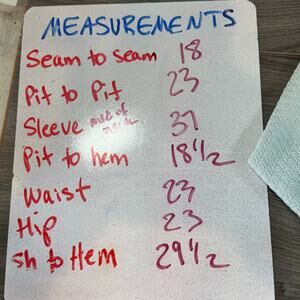 MEASUREMENTS
Seam to seam 18
Pit to Pit 23
Sleeve of neck 37
Pit to hem 18 1/2
Waist 23
Hip 23
Sh to Hem 29 1/2